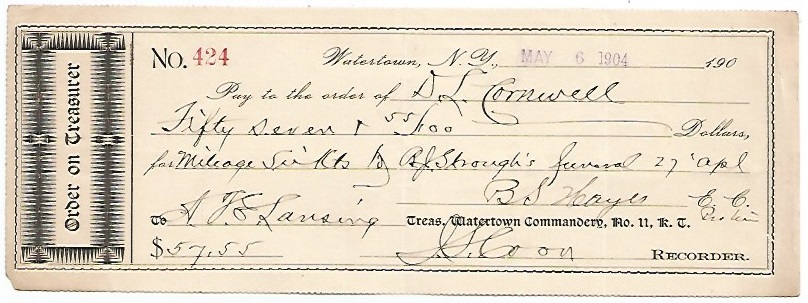 Order on Treasurer
No. 424 Watertown, N. Y., MAY 6 1904 190
Pay to the order of D. L. Cornwell
Fifty seven & 55/100 Dollars,
for Mileage Sir Kts to B.J. Strough's funeral 27 Apl
B S Hayes E. C.
To A. F. Lansing Treas. Watertown Commandery, No. 11, K. T.
$57.55 S. Coon RECORDER.